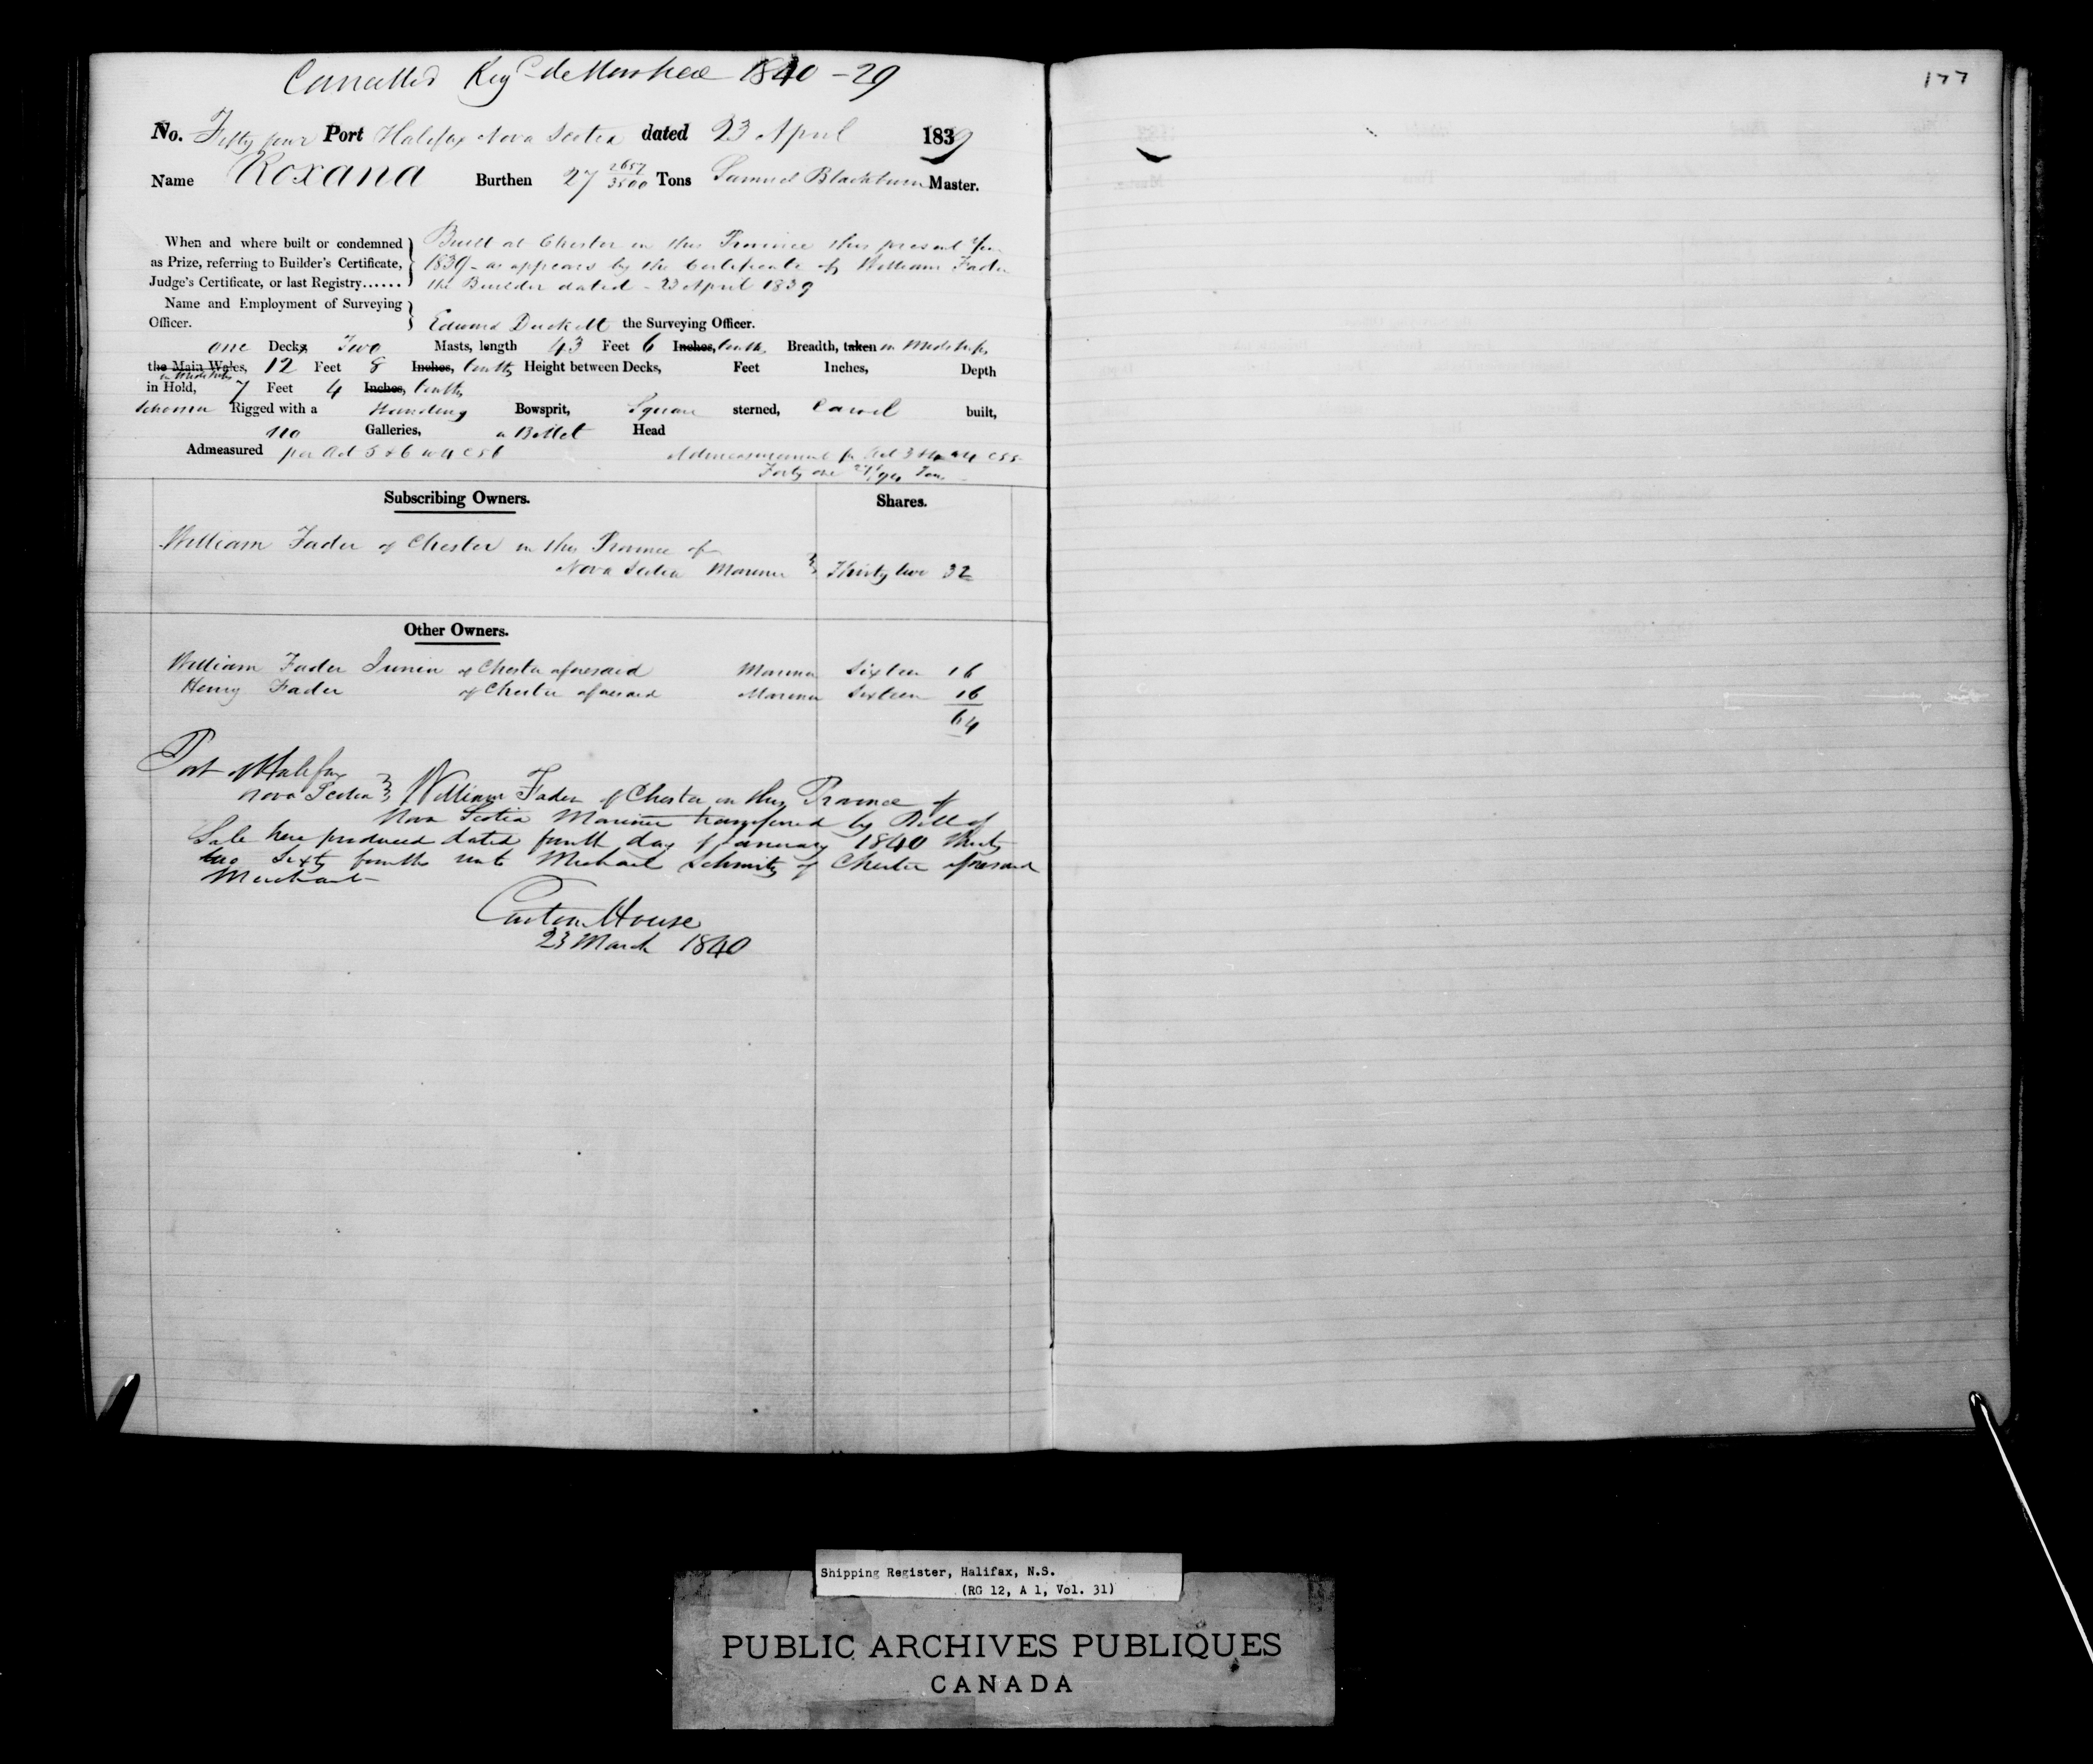 Cancelled Reg de 1840 - 29
177
No. Fifty four Port Halifax Nova Scotia dated 23 April 1839
Name Roxana Burthen 27 2657/3500 Tons Samuel Blackburn Master.
When and where built or condemned } Built at Chester in this Province this present Year
as Prize, referring to Builder's Certificate, 1839 - as appears by the Certificate of William Fader
Judge's Certificate, or last Registry...... the Builder dated - 23 April 1839
Name and Employment of Surveying }
Officer. Edward Duckett the Surveying Officer.
one Decks Two Masts, length 43 Feet 6 Inches, tenths, Breadth, taken in Midships
the Main Wales, 12 Feet 8 Inches, tenths, Height between Decks, Feet Inches, Depth
in Midships
in Hold, 7 Feet 4 Inches, tenths,
Schooner Rigged with a Standing Bowsprit, Square sterned, Carvel built,
no Galleries, a Billet Head
Admeasured per Act 5 & 6 W 4 C 56 Admeasurement pr Act 3 & 4 W 4 C 55
Forty one 27/94 Tons
Subscribing Owners. Shares.
William Fader of Chester in the Province of
Nova Scotia Mariner } Thirty two 32
Other Owners.
William Fader Junior of Chester aforesaid Mariner Sixteen 16
Henry Fader of Chester aforesaid Mariner Sixteen 16
64
Port of Halifax
Nova Scotia } William Fader of Chester in the Province of
Nova Scotia Mariner transferred by Bill of
Sale here produced dated fourth day of January 1840 Thirty
two Sixty fourths unto Michael Schmitz of Chester aforesaid
Merchant
Custom House
23 March 1840
Shipping Register, Halifax, N.S.
(RG 12, A 1, Vol. 31)
PUBLIC ARCHIVES PUBLIQUES
CANADA